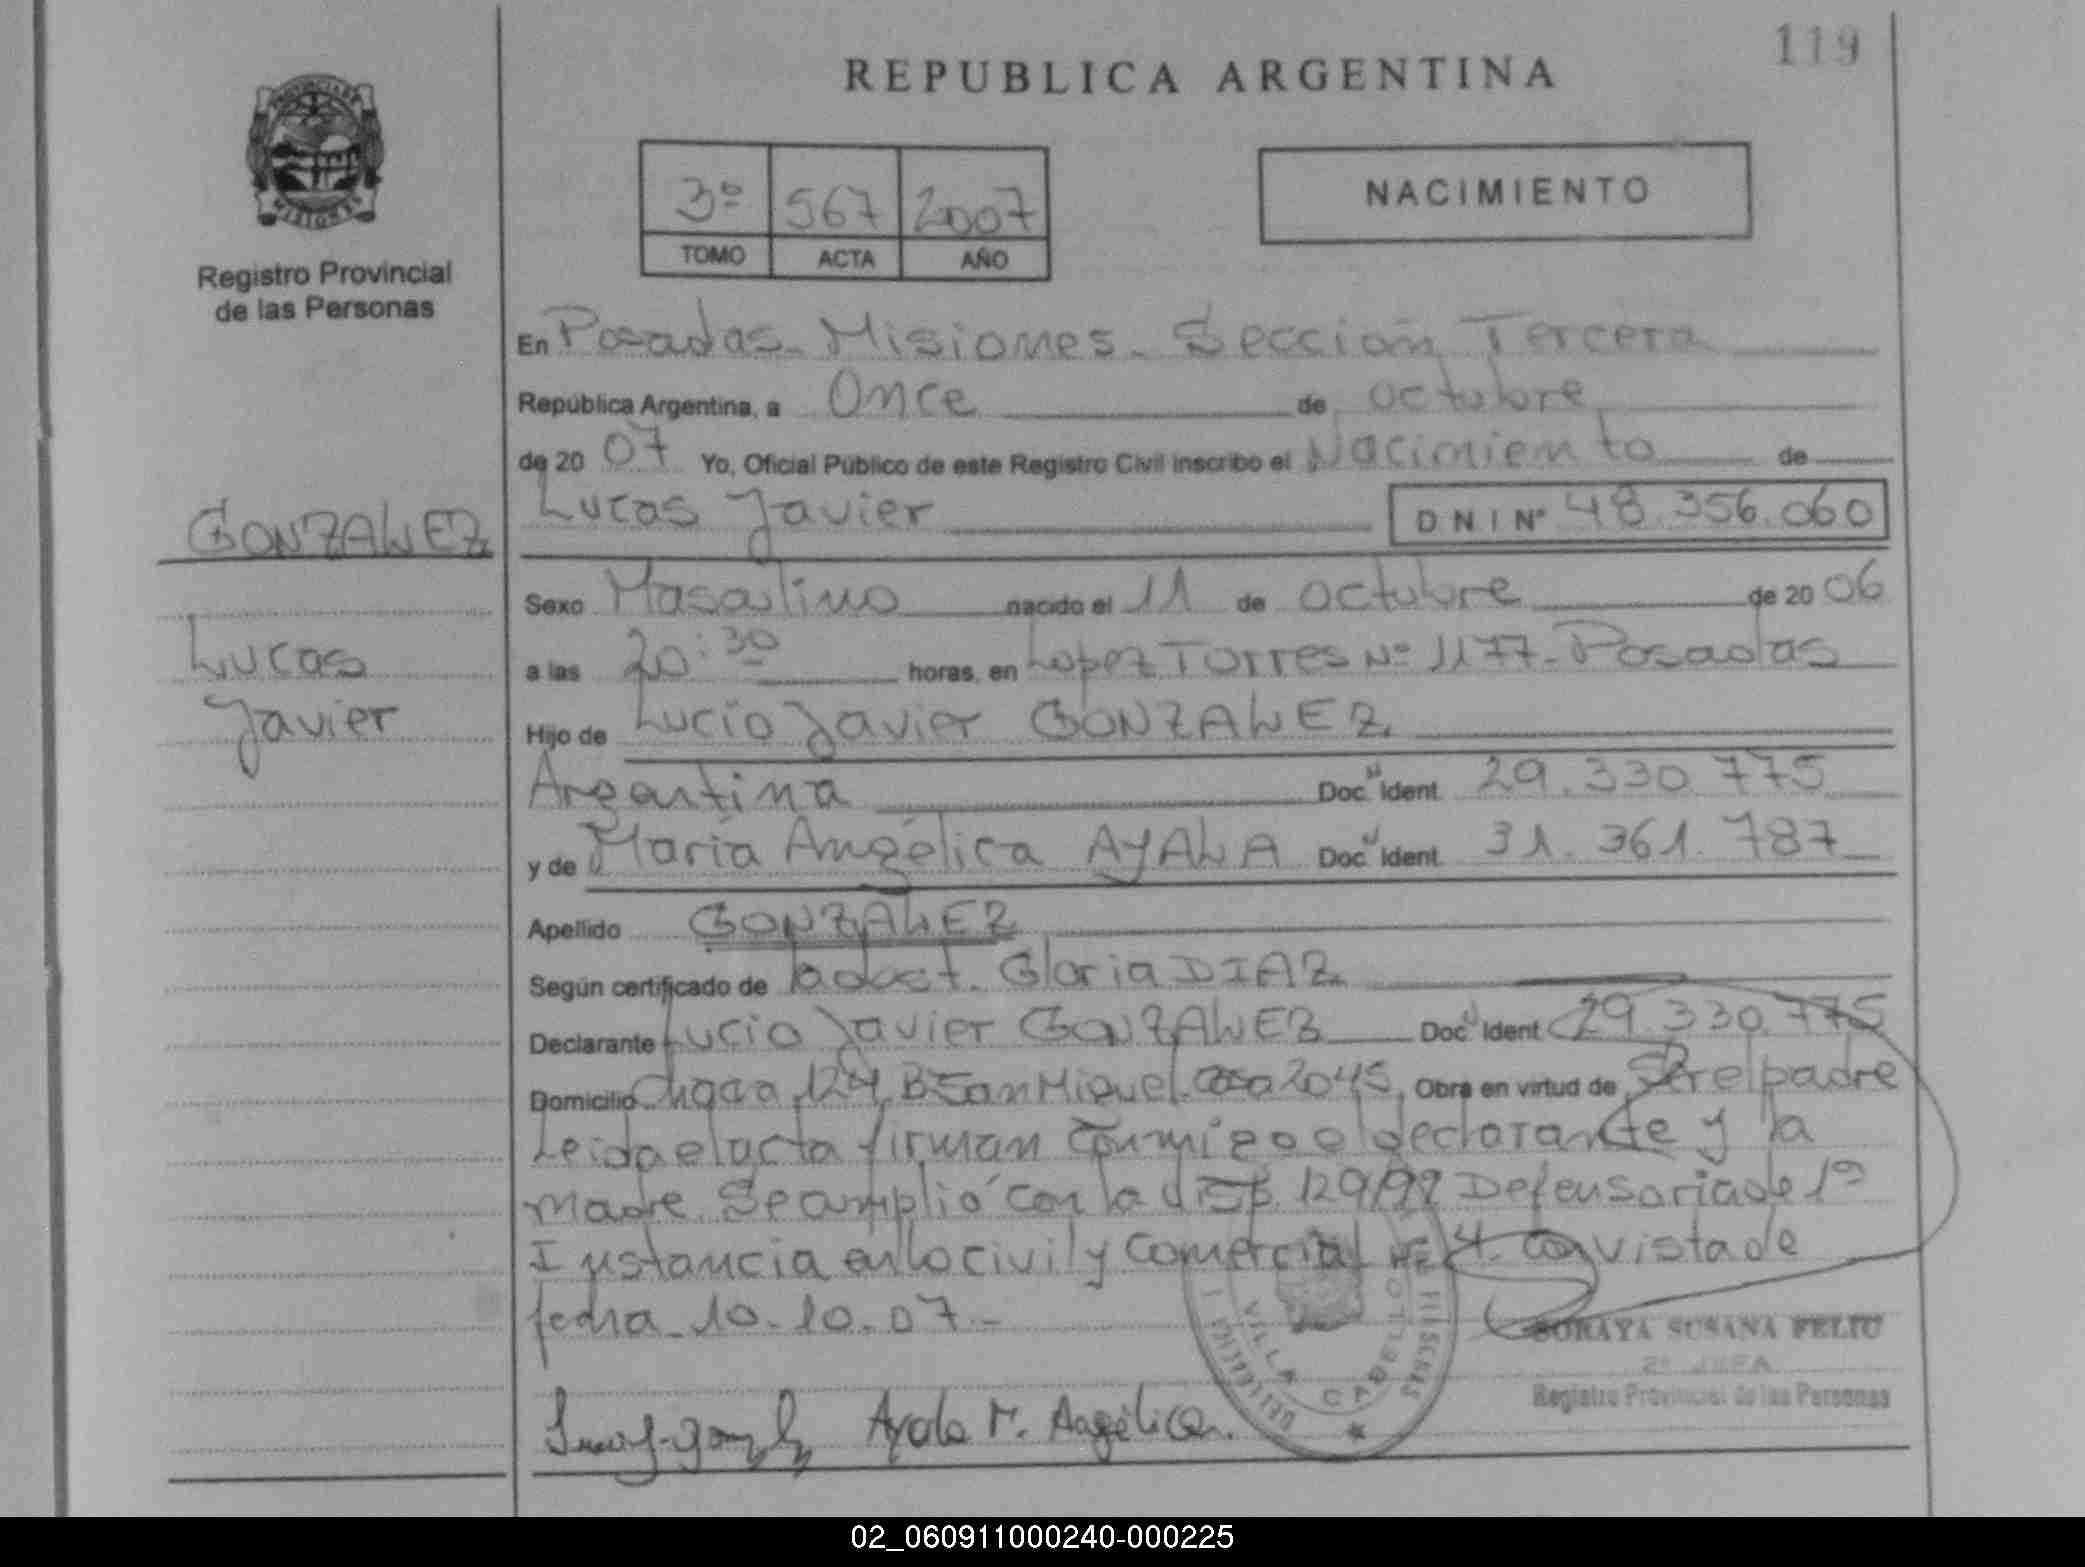 119
REPUBLICA ARGENTINA
PROVINCIA DE
MISIONES
Registro Provincial
de las Personas
3º 567 2007
TOMO ACTA AÑO
NACIMIENTO
En Posadas - Misiones - Sección Tercera
República Argentina, a Once de octubre
de 20 07 Yo, Oficial Público de este Registro Civil inscribo el Nacimiento de
GONZALEZ
Lucas Javier DNI Nº 48.356.060
Sexo Masculino nacido el 11 de octubre de 20 06
Lucas
a las 20:30 horas, en Lopez Torres Nº 1177 - Posadas
Javier
Hijo de Lucio Javier GONZALEZ
Argentina Doc Ident 29.330.775
y de María Angélica AYALA Doc Ident 31.361.787
Apellido GONZALEZ
Según certificado de la obst. Gloria DIAZ
Declarante Lucio Javier GONZALEZ Doc Ident 29.330.775
Domicilio Chacra 124 Bº San Miguel casa 2045 Obra en virtud de Ser el padre
Leida el acta firman conmigo el declarante y la
madre. Se amplió con la disp. 129/99 Defensoria de 1ª
Instancia en lo civil y Comercial Nº 4. con vista de
fecha 10-10-07-
SORAYA SUSANA FELIU
2ª JEFA
Registro Provincial de las Personas
VILLA CABELLO
Ayala M. Angélica.
02_060911000240-000225